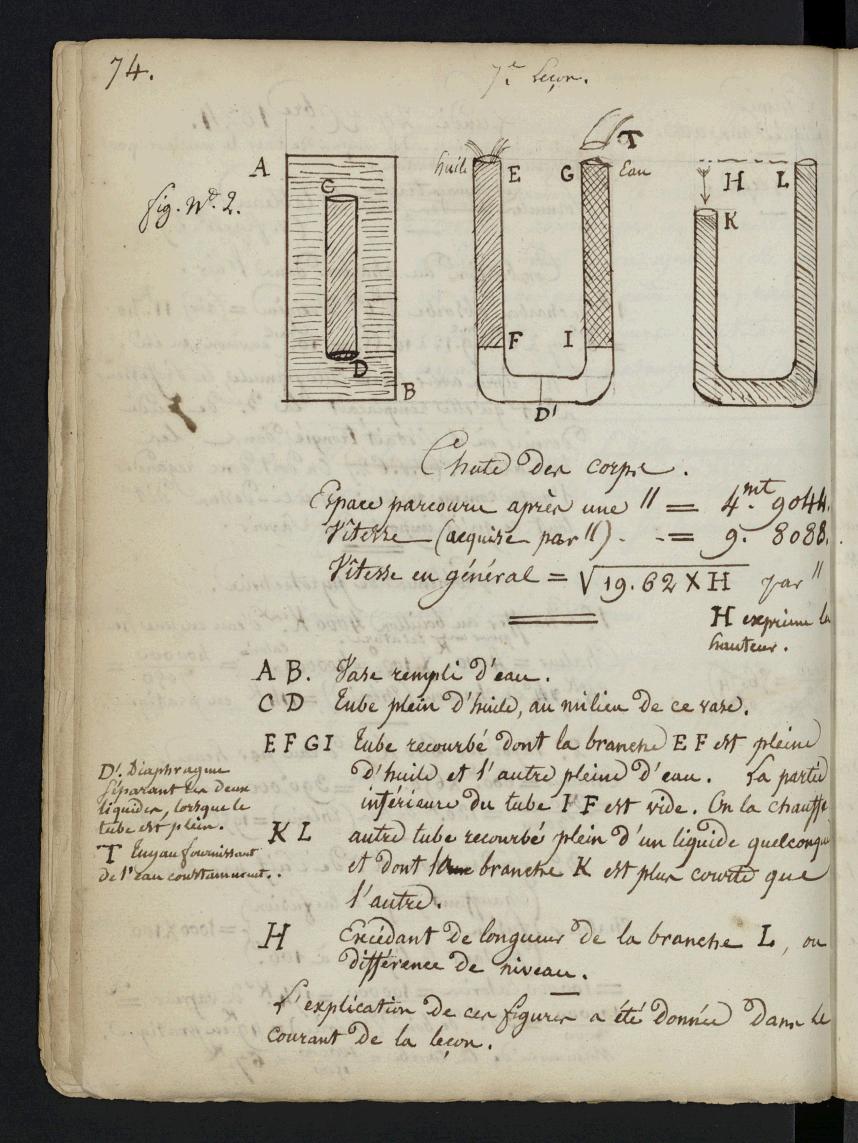 74.
7e Leçon.
fig. No. 2.
A
C
D
B
huile
E
F
D'
G
I
T
Eau
H
L
K
Chute des corps.
Espace parcouru après une " = 4.mt 9044.
Vitesse (acquise par ") - - = 9. 8088.
Vitesse en général = √19.62 X H par "
H exprime la
hauteur.
A B. Vase rempli d'eau.
C D Tube plein d'huile, au milieu de ce vase.
E F G I Tube recourbé dont la branche E F est pleine
d'huile et l'autre pleine d'eau. La partie
inférieure du tube I F est vide. On la chauffe
K L autre tube recourbé plein d'un liquide quelconque
et dont branche K est plus courte que
l'autre.
H Excédant de longueur de la branche L, ou
différence de niveau.
D'. Diaphragme
séparant les deux
liquides, lorsque le
tube est plein.
T Tuyau fournissant
de l'Eau constamment.
L'explication de ces figures a été donnée dans le
courant de la leçon.